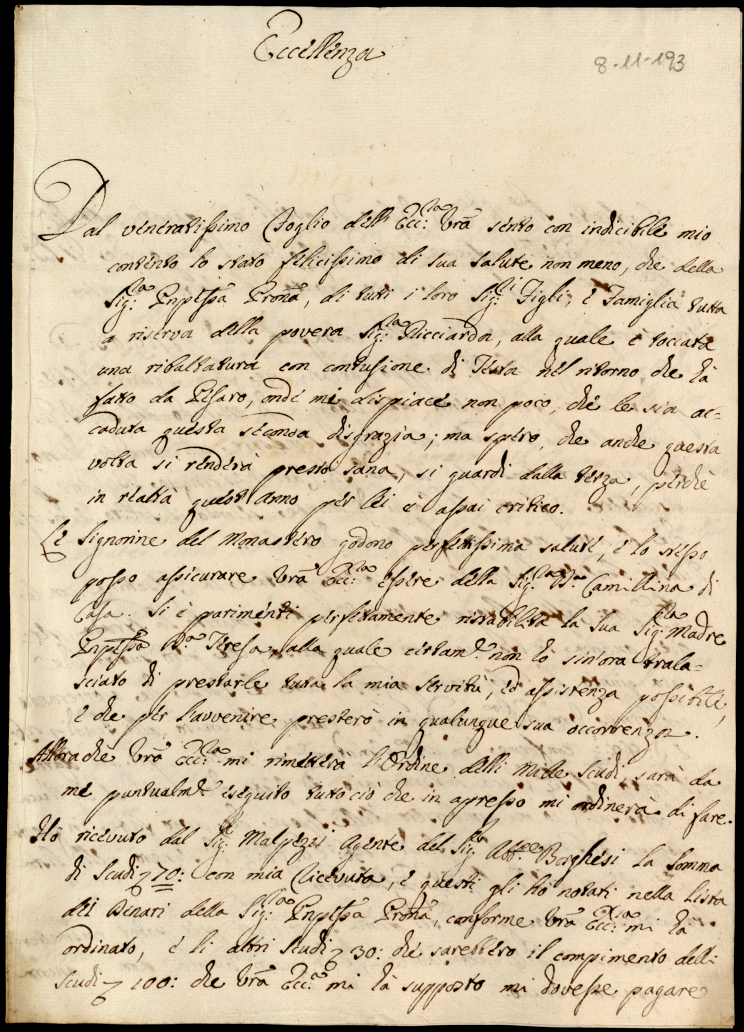 Eccellenza
8-11-193
Dal veneratissimo Foglio dell' Ecc:za Vrã sento con indicibile mio
contento lo stato felicissimo di sua salute non meno, che della
Sig:ra Pnpessã Pronã, di tutti i loro Sig:ri Figli, e Famiglia tutta
a riserva della povera Sig:ra Ricciarda, alla quale è toccata
una ribaltatura con contusione di Testa nel ritorno che hà
fatto da Pesaro, onde mi dispiace non poco, che le sia ac=
caduta questa seconda disgrazia; ma spero, che anche questa
volta si renderà presto sana, si guardi dalla terza, perchè
in realtà quest'Anno per lei è assai critico.
Le Signorine del Monastero godono perfettissima salute, e lo stesso
posso assicurare Vrã Ecc:za essere della Sig:ra D:na Camillina di
Casa. Si è parimenti perfettamente ristabilita la Sua Sig:ra Madre
Pnpessã D:na Teresa, alla quale certam:te non hò sin'ora trala=
sciato di prestarle tutta la mia servitù, ed assistenza possibile,
e che per l'avvenire presterò in qualunque sua occorrenza.
Allora che Vrã Ecc:za mi rimetterà l'Ordine delli mille scudi sarà da
me puntualm:te eseguito tutto ciò che in apresso mi ordinerà di fare.
Hò ricevuto dal Sig:r Malpezzi Agente del Sig:r Abb:e Borghesi la somma
di Scudi 70: con mia ricevuta, e questi gli ho notati nella Lista
dei Denari della Sig:ra Pnpessã Pronã, conforme Vrã Ecc:za mi hà
ordinato, e li altri Scudi 30: che sarebbero il compimento delli
scudi 100: che Vrã Ecc:za mi hà supposto mi dovesse pagare